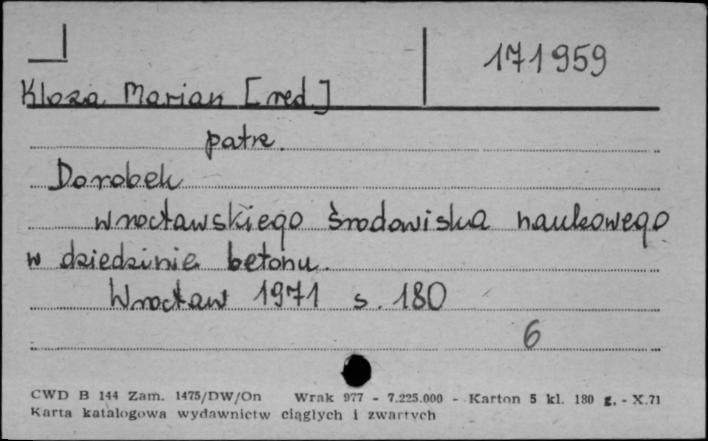 171959
Kloza Marian [red.]
patrz.
Dorobek
wrocławskiego środowiska naukowego
w dziedzinie betonu.
Wrocław 1971 s. 180
6
CWD B 144 Zam. 1475/DW/On Wrak 977 - 7.225.000 - Karton 5 kl. 180 g. - X.71
Karta katalogowa wydawnictw ciągłych i zwartych